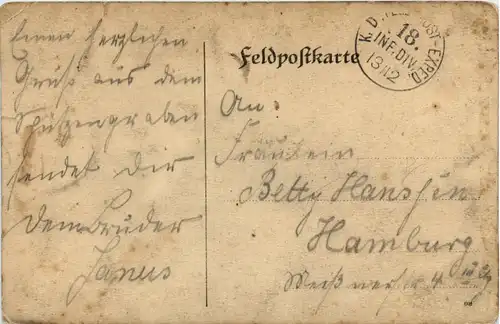 Einen herzlichen
Gruß aus dem
Schützengraben
sendet Dir
Dein Bruder
Janus
Feldpostkarte
K. D. FELDPOST-EXPED.
18.
INF.DIV.
13/12
An:
Fräulein
Betty Hanssen
Hamburg